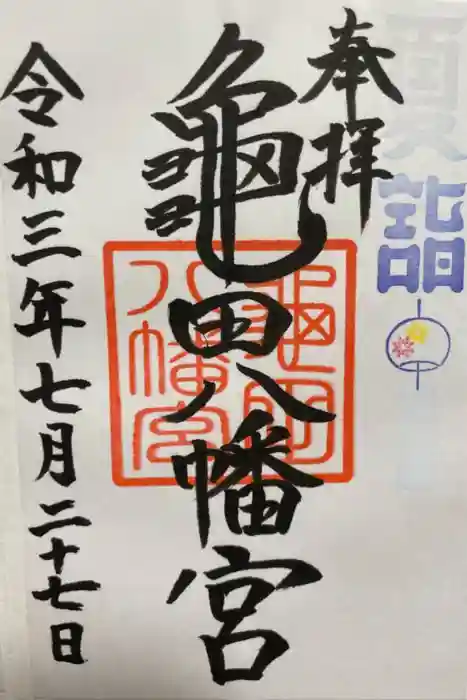 夏詣
奉拝
龜田八幡宮
龜田
八幡宮
令和三年七月二十七日